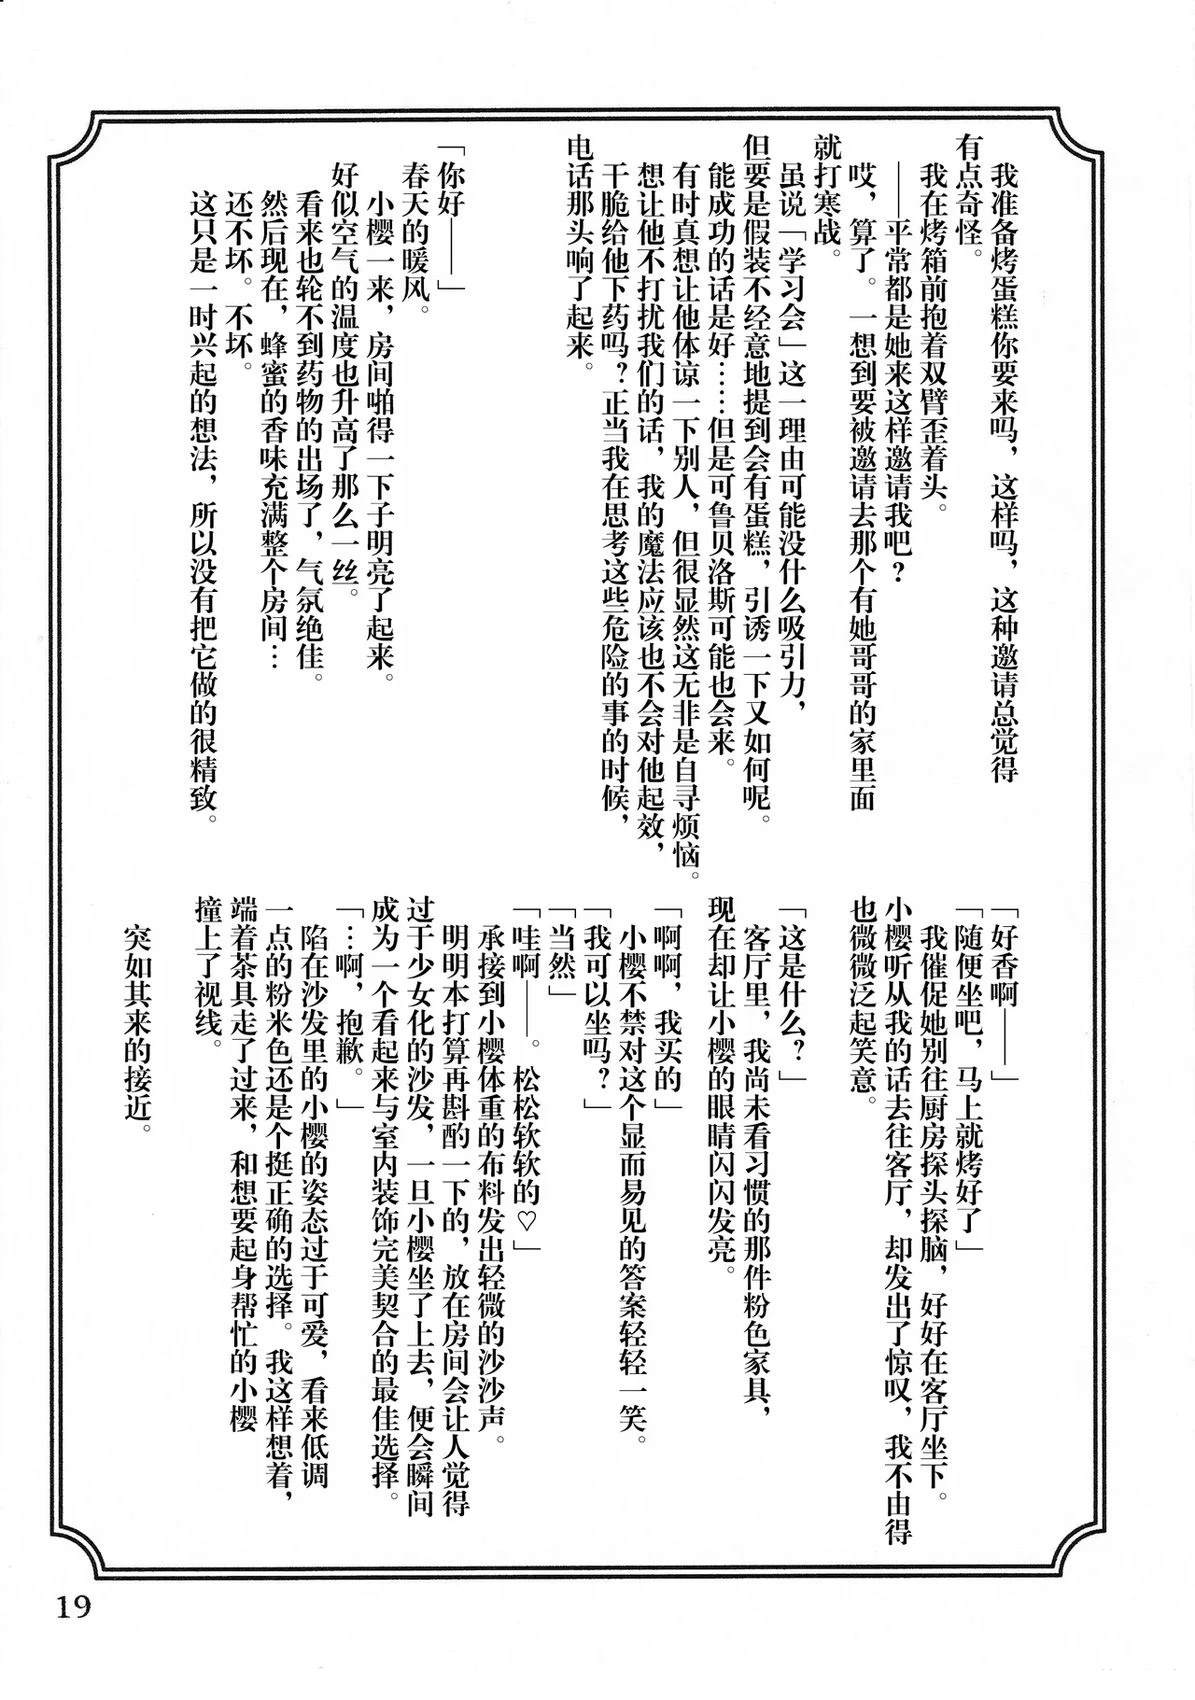 我准备烤蛋糕你要来吗，这样吗，这种邀请总觉得
有点奇怪。
我在烤箱前抱着双臂歪着头。
——平常都是她来这样邀请我吧？
哎，算了。一想到要被邀请去那个有她哥哥的家里面
就打寒战。
虽说「学习会」这一理由可能没什么吸引力，
但要是假装不经意地提到会有蛋糕，引诱一下又如何呢。
能成功的话是好……但是可鲁贝洛斯可能也会来。
有时真想让他体谅一下别人，但很显然这无非是自寻烦恼。
想让他不打扰我们的话，我的魔法应该也不会对他起效，
干脆给他下药吗？正当我在思考这些危险的事的时候，
电话那头响了起来。
「你好——」
春天的暖风。
小樱一来，房间啪得一下子明亮了起来。
好似空气的温度也升高了那么一丝。
看来也轮不到药物的出场了，气氛绝佳。
然后现在，蜂蜜的香味充满整个房间…
还不坏。不坏。
这只是一时兴起的想法，所以没有把它做的很精致。
「好香啊——」
「随便坐吧，马上就烤好了」
我催促她别往厨房探头探脑，好好在客厅坐下。
小樱听从我的话去往客厅，却发出了惊叹，我不由得
也微微泛起笑意。
「这是什么？」
客厅里，我尚未看习惯的那件粉色家具，
现在却让小樱的眼睛闪闪发亮。
「啊啊，我买的」
小樱不禁对这个显而易见的答案轻轻一笑。
「我可以坐吗？」
「当然」
「哇啊——。松松软软的♡」
承接到小樱体重的布料发出轻微的沙沙声。
明明本打算再斟酌一下的，放在房间会让人觉得
过于少女化的沙发，一旦小樱坐了上去，便会瞬间
成为一个看起来与室内装饰完美契合的最佳选择。
「…啊，抱歉。」
陷在沙发里的小樱的姿态过于可爱，看来低调
一点的粉米色还是个挺正确的选择。我这样想着，
端着茶具走了过来，和想要起身帮忙的小樱
撞上了视线。
突如其来的接近。
19